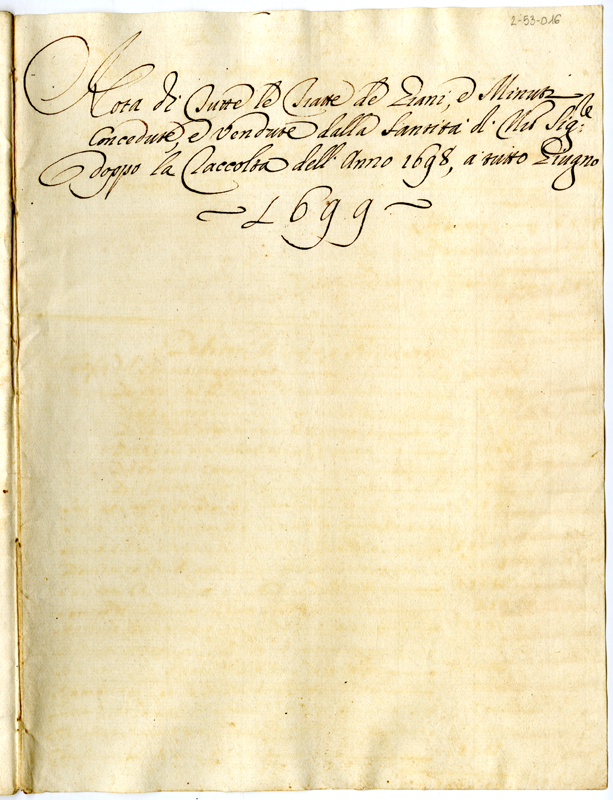 2-53-016
Nota di Tutte le Tratte de Grani, e Minuti
Concedute, e Vendute dalla Santità di Nro Sig.re
doppo la Raccolta dell' Anno 1698, a tutto Giugno
1699